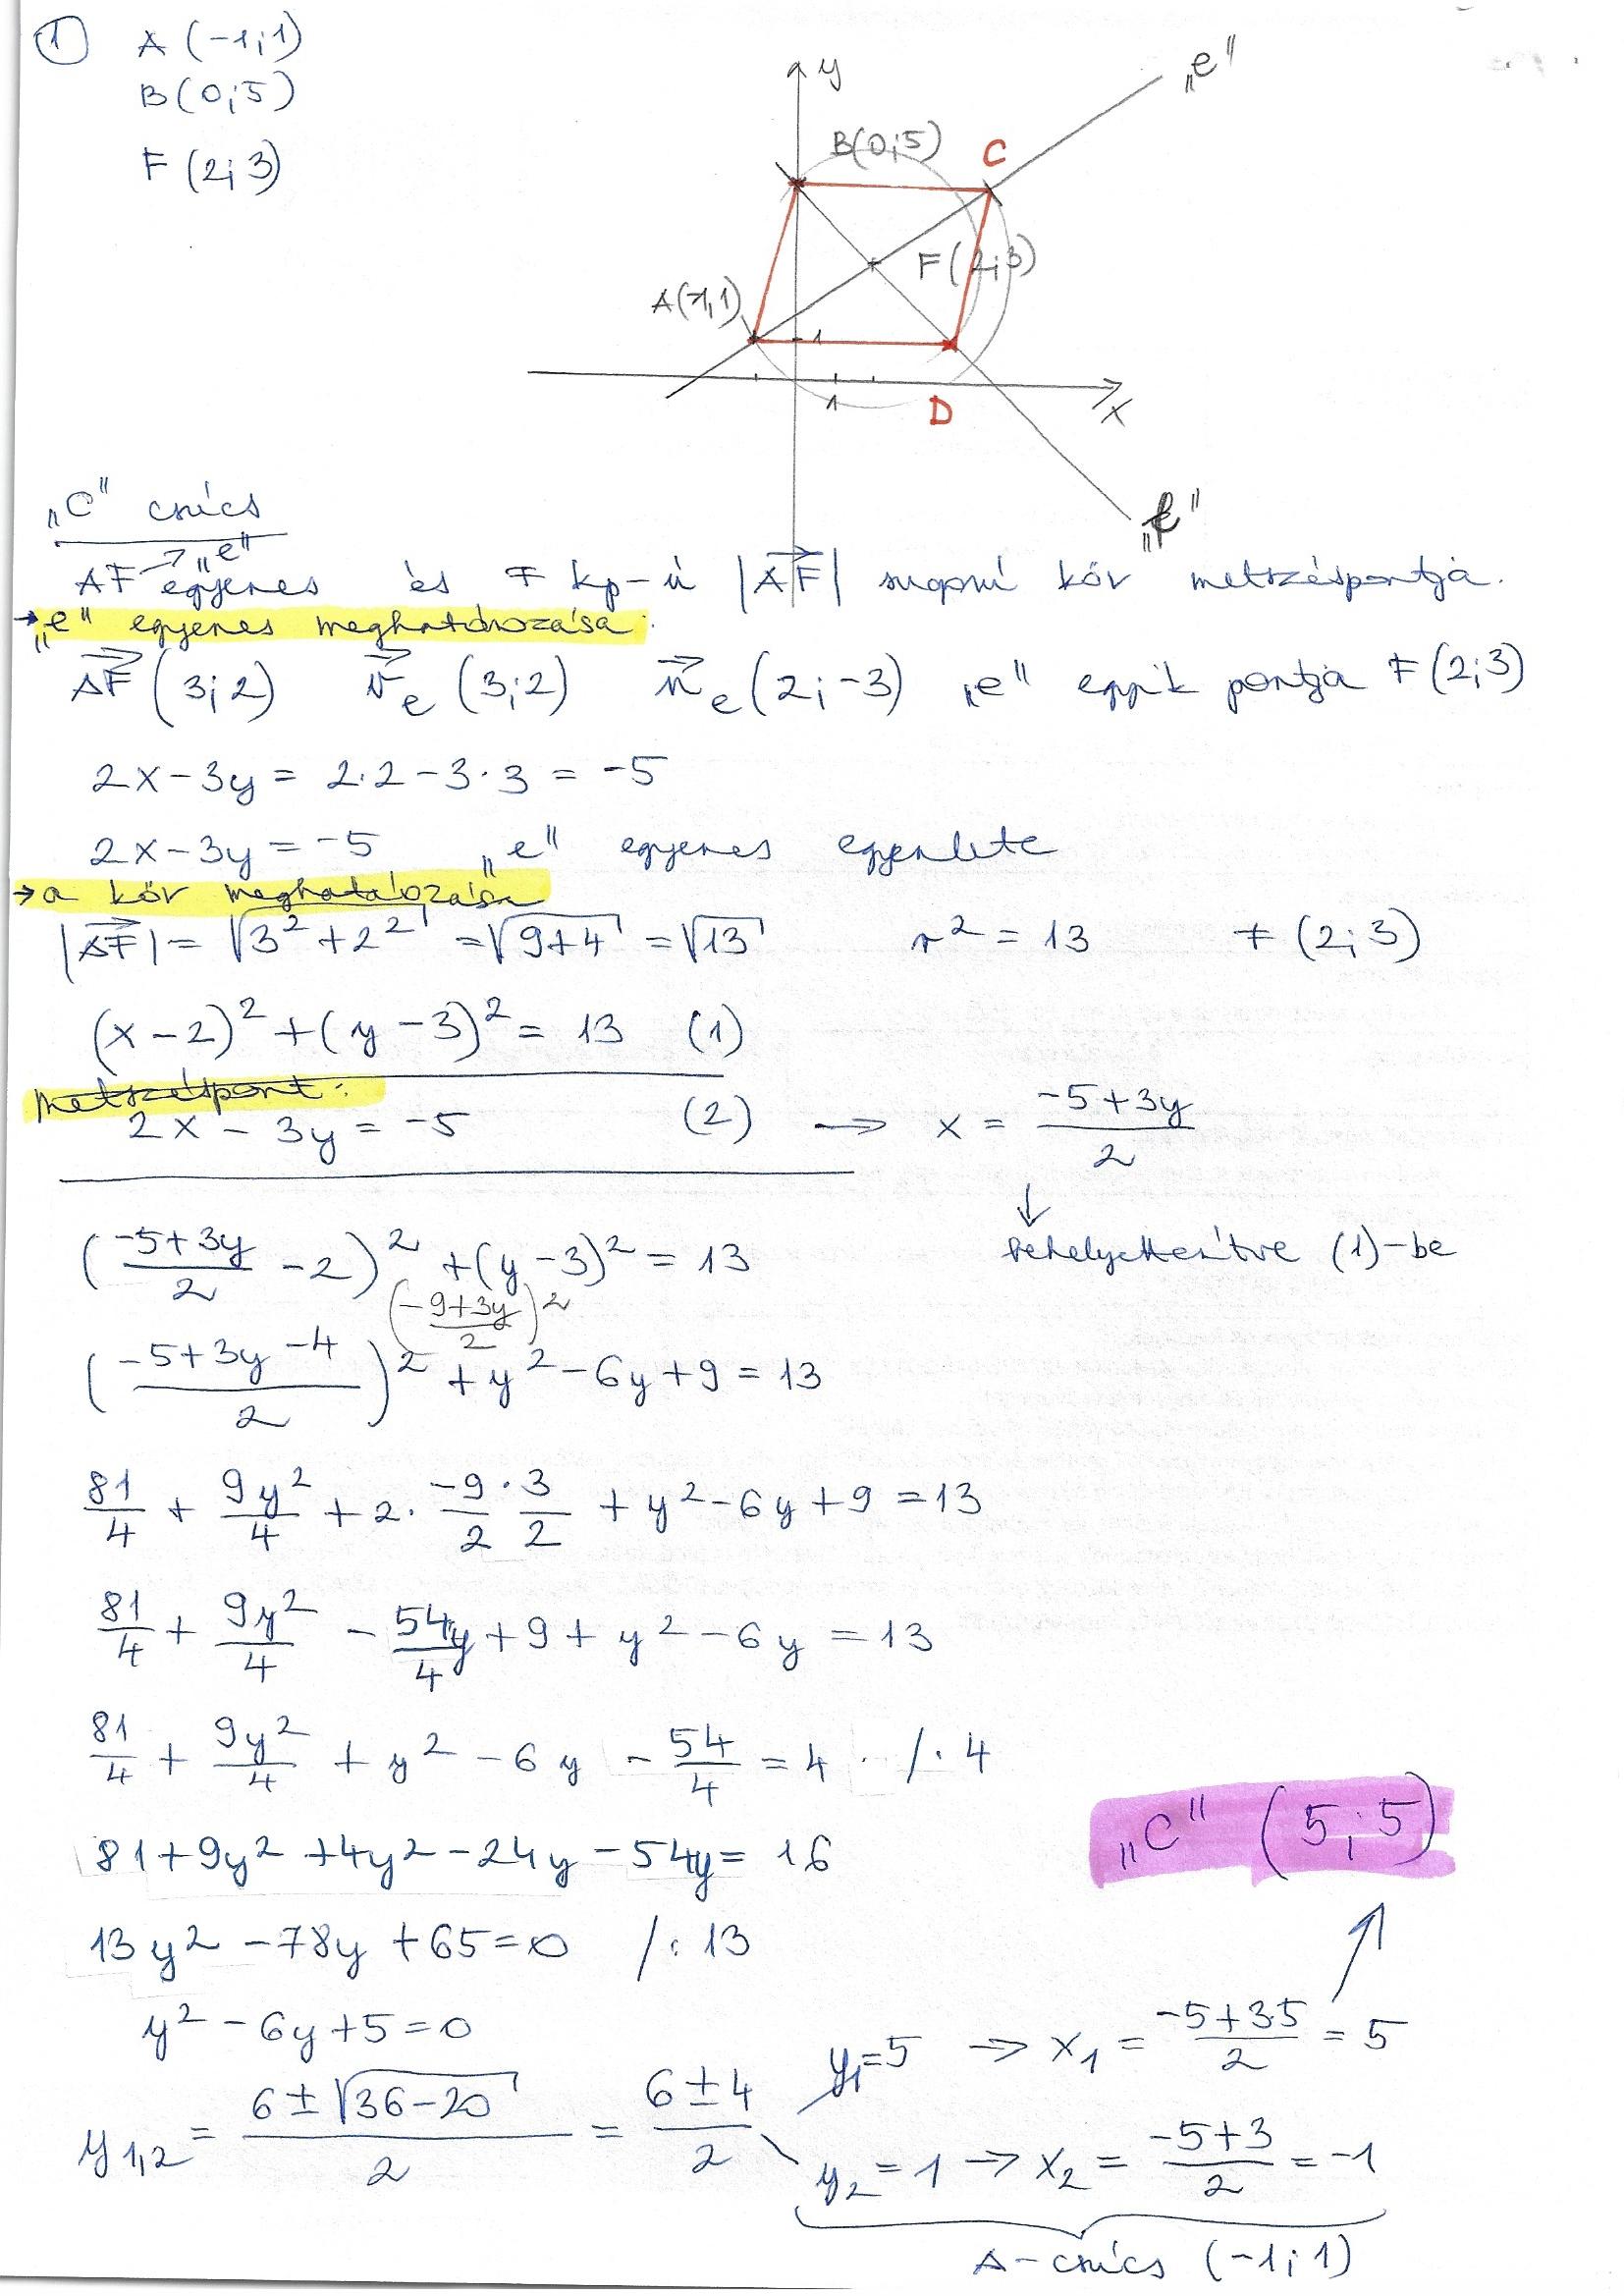 ① A (-1;1)
B (0;5)
F (2;3)
y
„e"
B(0;5)
C
F(2;3)
A(-1,1)
1
1
D
x
„f"
„C" csúcs
AF → „e" egyenes és F kp-ú |AF| sugarú kör metszéspontja.
→ „e" egyenes meghatározása.
AF (3;2) v e (3;2) n e (2;-3) „e" egyik pontja F (2;3)
2x-3y = 2·2-3·3 = -5
2x-3y = -5 „e" egyenes egyenlete
→ a kör meghatározása
|AF| = √3²+2² = √9+4 = √13 r² = 13 F (2;3)
(x-2)² + (y-3)² = 13 (1)
Metszéspont:
2x - 3y = -5 (2) → x = (-5+3y)/2
↓
behelyettesítve (1)-be
((-5+3y)/2 - 2)² + (y-3)² = 13
((-9+3y)/2)²
((-5+3y-4)/2)² + y² - 6y + 9 = 13
81/4 + 9y²/4 + 2· -9/2 · 3/2 + y² - 6y + 9 = 13
81/4 + 9y²/4 - 54/4 y + 9 + y² - 6y = 13
81/4 + 9y²/4 + y² - 6y - 54/4 = 4 /·4
81 + 9y² + 4y² - 24y - 54y = 16
„C" (5;5)
13y² - 78y + 65 = 0 /:13
y² - 6y + 5 = 0
y1,2 = (6 ± √36-20)/2 = (6±4)/2
y1 = 5 → x1 = (-5+3·5)/2 = 5
y2 = 1 → x2 = (-5+3)/2 = -1
A-csúcs (-1;1)